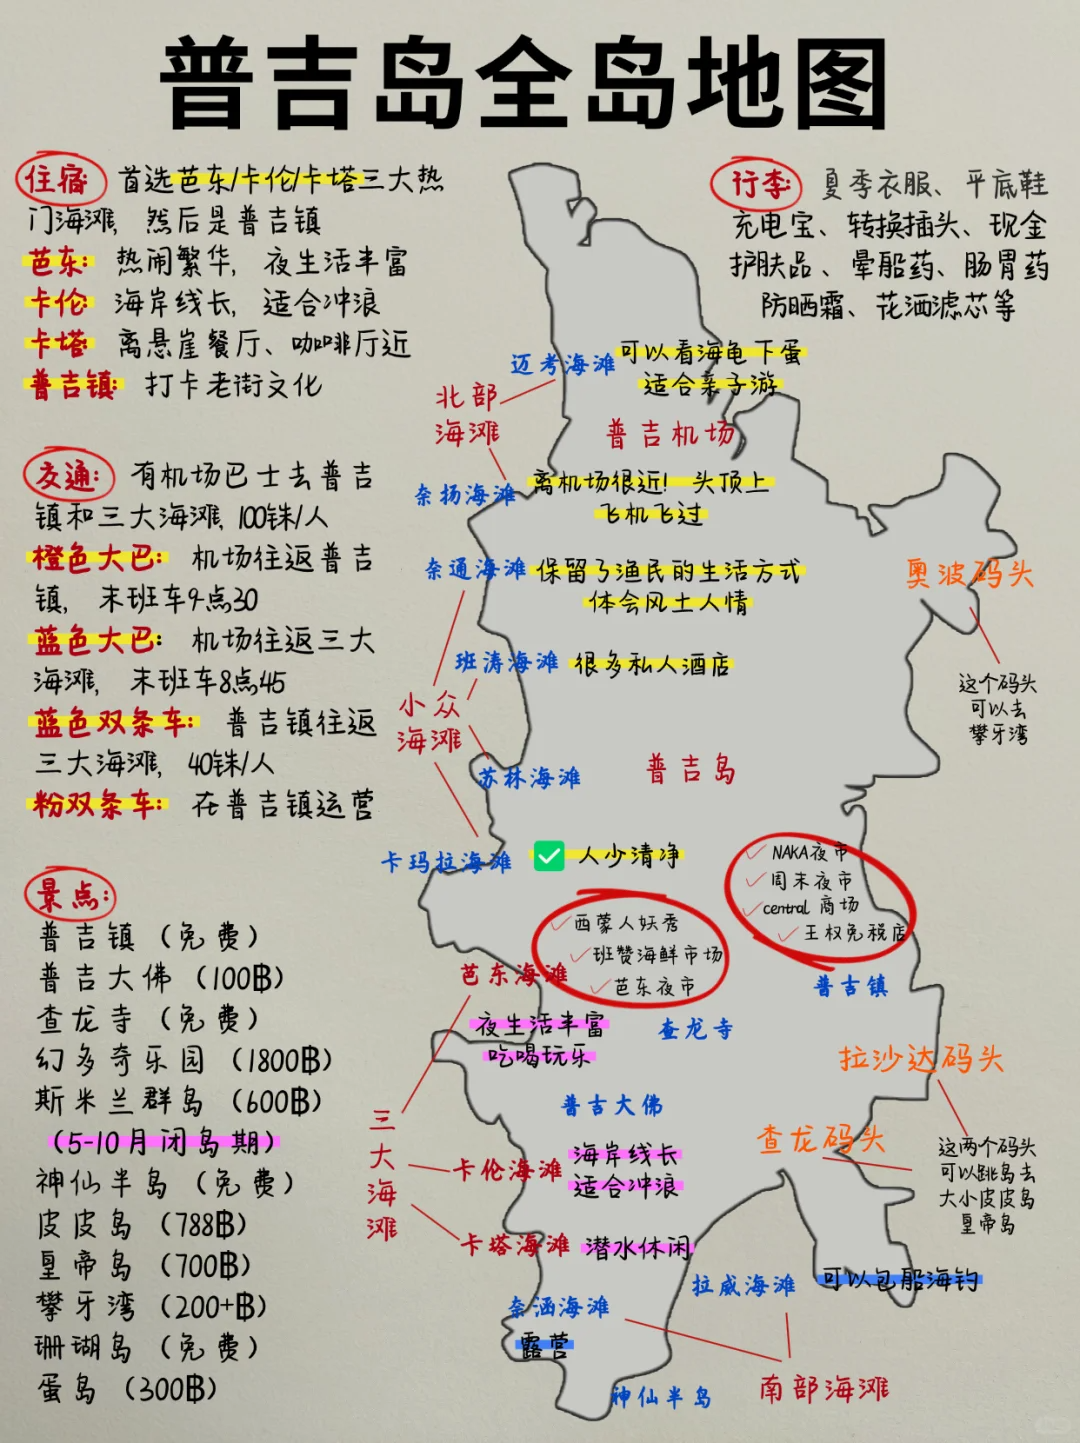 普吉岛全岛地图
住宿: 首选芭东/卡伦/卡塔三大热
门海滩, 然后是普吉镇
芭东: 热闹繁华, 夜生活丰富
卡伦: 海岸线长, 适合冲浪
卡塔: 离悬崖餐厅、咖啡厅近
普吉镇: 打卡老街文化
行李: 夏季衣服、平底鞋
充电宝、转换插头、现金
护肤品、晕船药、肠胃药
防晒霜、花洒滤芯等
交通: 有机场巴士去普吉
镇和三大海滩, 100铢/人
橙色大巴: 机场往返普吉
镇, 末班车9点30
蓝色大巴: 机场往返三大
海滩, 末班车8点45
蓝色双条车: 普吉镇往返
三大海滩, 40铢/人
粉双条车: 在普吉镇运营
景点:
普吉镇（免费）
普吉大佛（100฿）
查龙寺（免费）
幻多奇乐园（1800฿）
斯米兰群岛（600฿）
（5-10月闭岛期）
神仙半岛（免费）
皮皮岛（788฿）
皇帝岛（700฿）
攀牙湾（200+฿）
珊瑚岛（免费）
蛋岛（300฿）
迈考海滩
可以看海龟下蛋
适合亲子游
北部
海滩
普吉机场
奈扬海滩
离机场很近! 头顶上
飞机飞过
奈通海滩
保留了渔民的生活方式
体会风土人情
奥波码头
这个码头
可以去
攀牙湾
班涛海滩
很多私人酒店
小众
海滩
苏林海滩
普吉岛
卡玛拉海滩
✅ 人少清净
NAKA夜市
周末夜市
central 商场
王权免税店
西蒙人妖秀
班赞海鲜市场
芭东夜市
芭东海滩
夜生活丰富
吃喝玩乐
普吉镇
查龙寺
拉沙达码头
普吉大佛
查龙码头
这两个码头
可以跳岛去
大小皮皮岛
皇帝岛
三
大
海
滩
卡伦海滩
海岸线长
适合冲浪
卡塔海滩
潜水休闲
拉威海滩
可以包船海钓
奈涵海滩
露营
南部海滩
神仙半岛